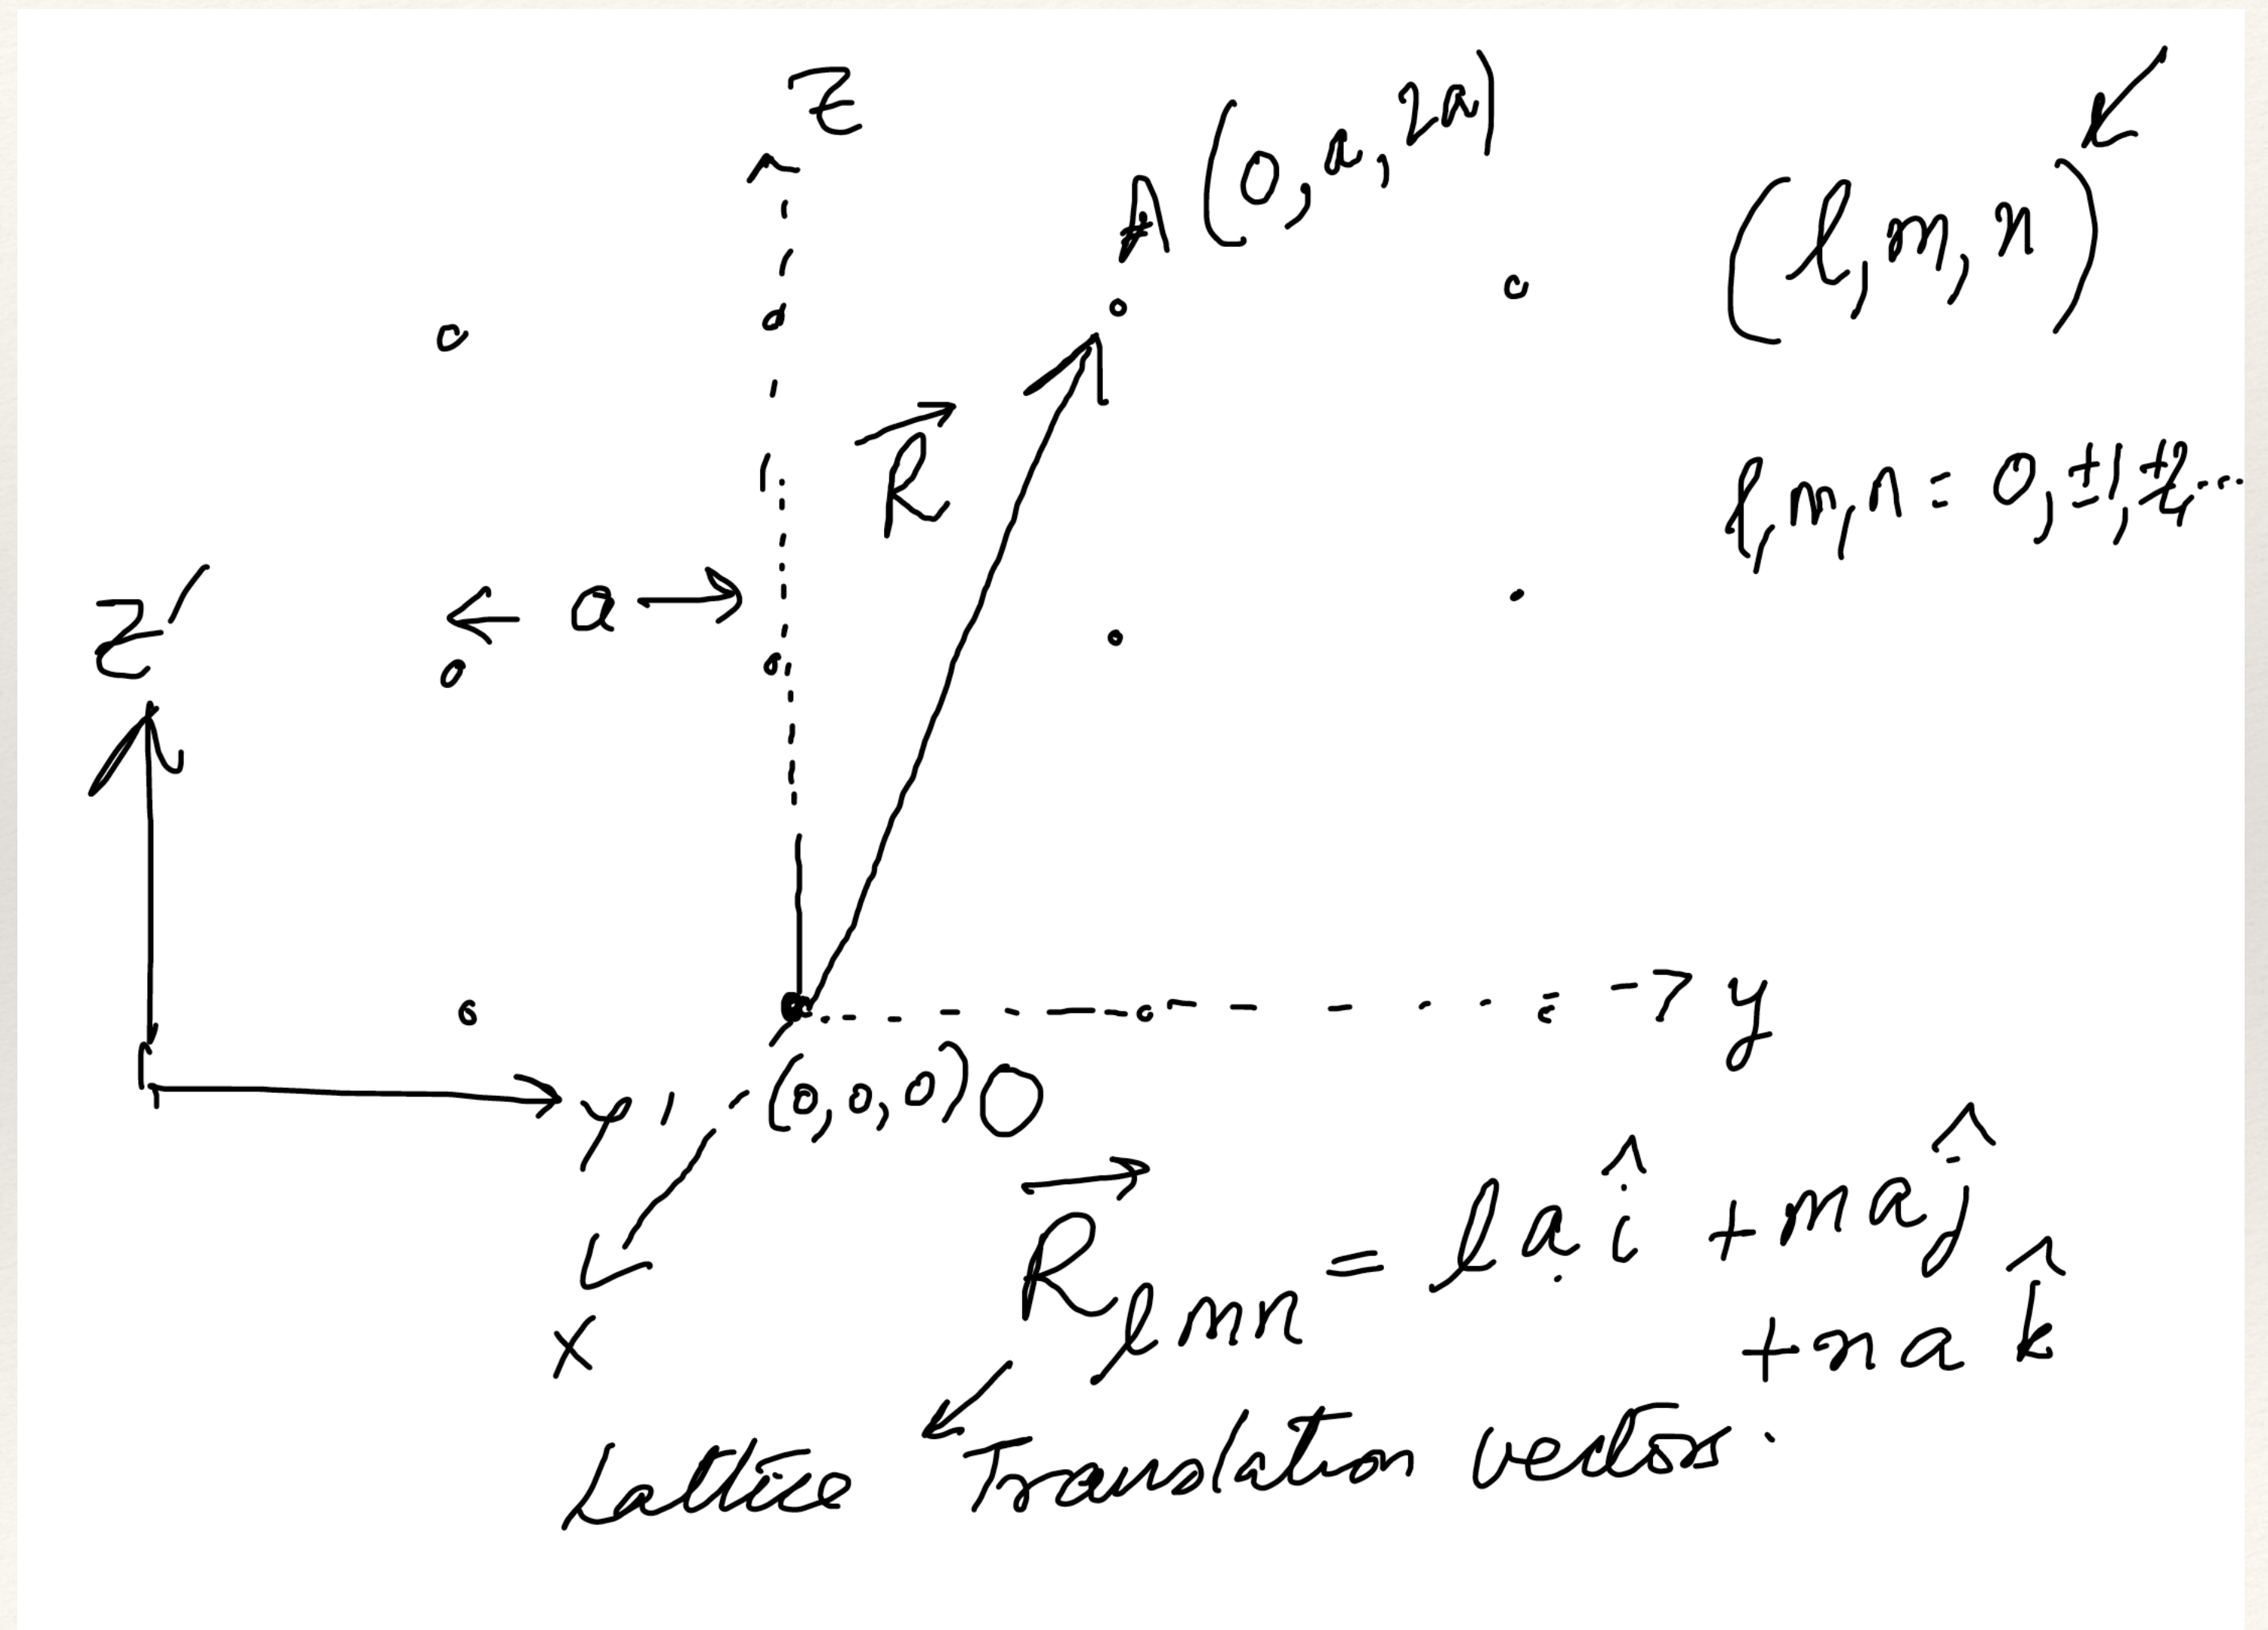 Z
A (0, a, 2a)
(l, m, n)
R⃗
l, m, n = 0, ±1, ±2, ...
Z'
← a →
y
y'
(0, 0, 0) O
x
R⃗ₗₘₙ = l a î + m a ĵ
+ n a k̂
Lattice Translation vectors.